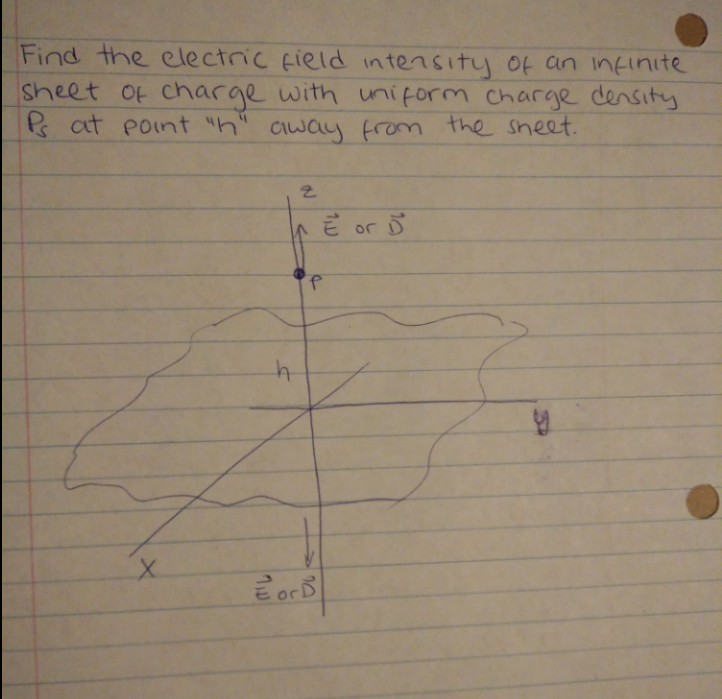 Find the electric field intensity of an infinite
sheet of charge with uniform charge density
Ps at point "h" away from the sheet.
z
E⃗ or D⃗
P
h
y
X
E⃗ or D⃗